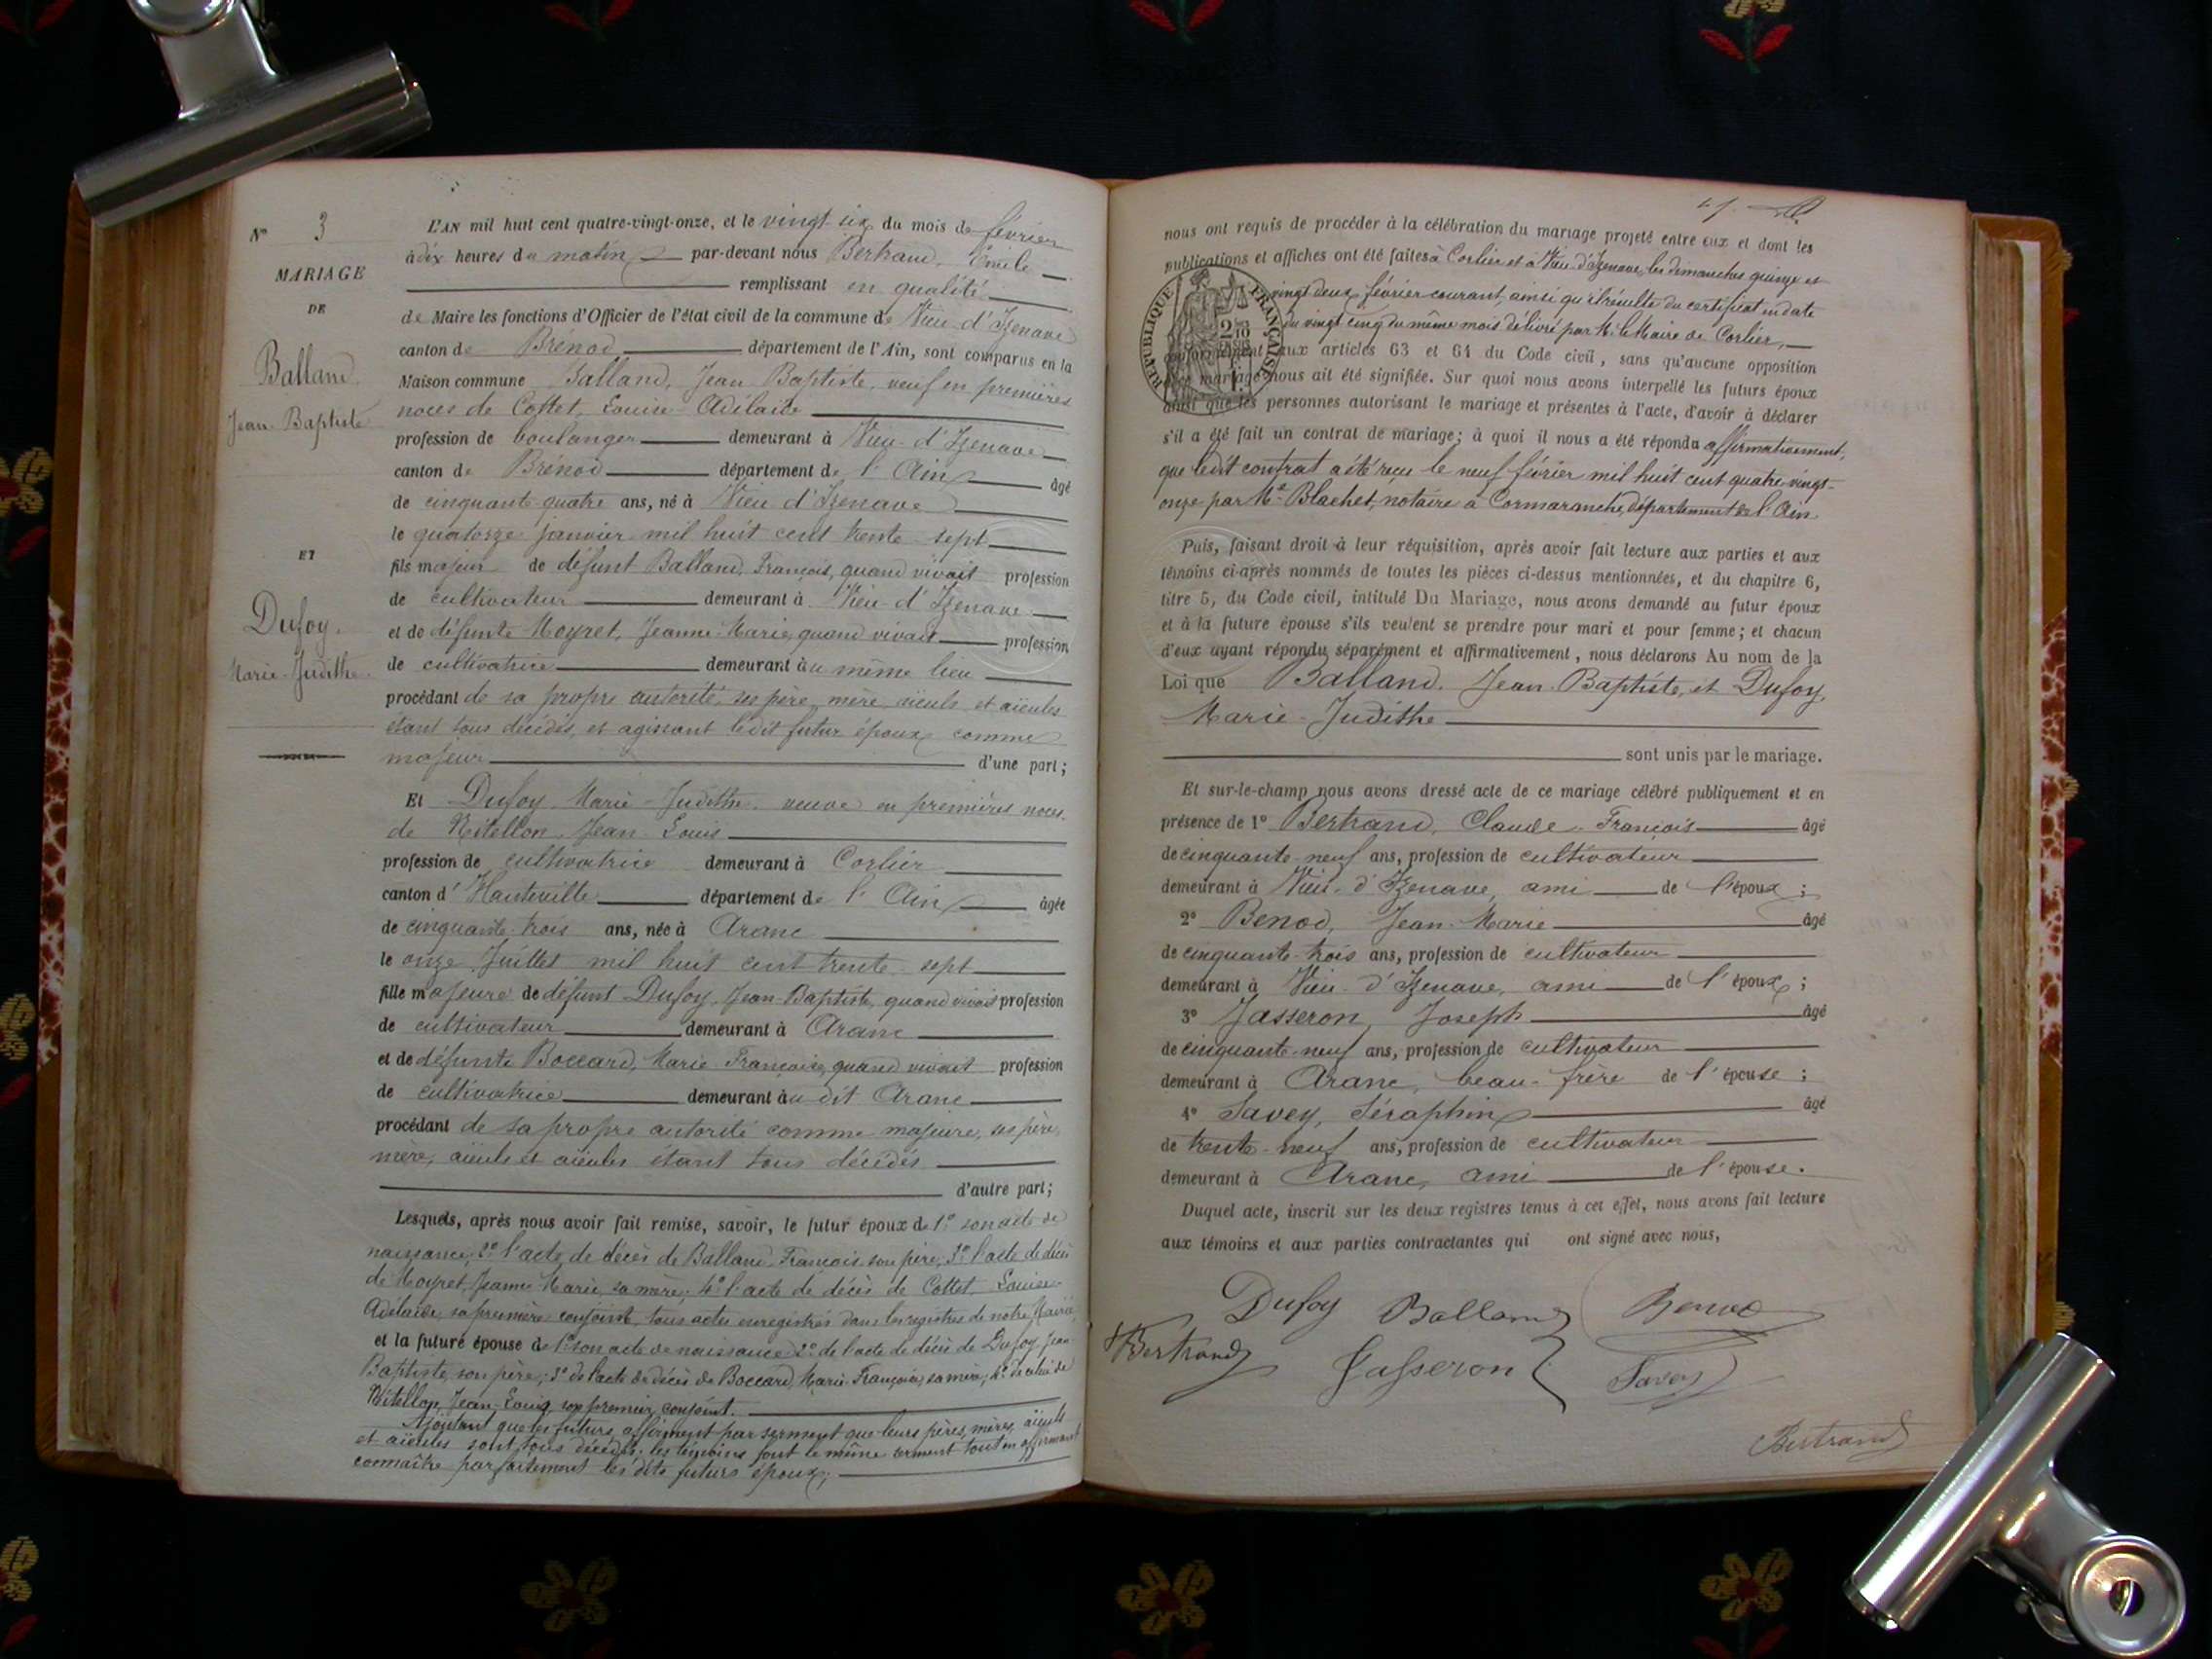 N° 3
MARIAGE
DE
Balland
Jean-Baptiste
ET
Dufoy
Marie-Judithe
L'AN mil huit cent quatre-vingt-onze, et le vingt-six du mois de février
à dix heures du matin par-devant nous Bertrand, Emile
remplissant en qualité
de Maire les fonctions d'Officier de l'état civil de la commune de Vieu-d'Izenave
canton de Brénod département de l'Ain, sont comparus en la
Maison commune Balland, Jean Baptiste, veuf en premières
noces de Cottet, Louise-Adélaïde
profession de boulanger demeurant à Vieu-d'Izenave
canton de Brénod département de l'Ain âgé
de cinquante-quatre ans, né à Vieu d'Izenave
le quatorze janvier mil huit cent trente-sept
fils majeur de défunt Balland, François, quand vivait profession
de cultivateur demeurant à Vieu-d'Izenave
et de défunte Moyret, Jeanne-Marie, quand vivait profession
de cultivatrice demeurant au même lieu
procédant de sa propre autorité, ses père, mère, aïeuls et aïeules
étant tous décédés, et agissant ledit futur époux comme
majeur d'une part;
Et Dufoy Marie-Judithe veuve en premières noces
de Nitellon Jean-Louis
profession de cultivatrice demeurant à Corlier
canton d'Hauteville département de l'Ain âgée
de cinquante-trois ans, née à Aranc
le onze Juillet mil huit cent trente-sept
fille majeure de défunt Dufoy, Jean-Baptiste, quand vivait profession
de cultivateur demeurant à Aranc
et de défunte Boccard, Marie Françoise, quand vivait profession
de cultivatrice demeurant au dit Aranc
procédant de sa propre autorité comme majeure, ses père,
mère, aïeuls et aïeules étant tous décédés
d'autre part;
Lesquels, après nous avoir fait remise, savoir, le futur époux de 1° son acte de
naissance; 2° l'acte de décès de Balland François son père; 3° l'acte de décès
de Moyret, Jeanne Marie, sa mère; 4° l'acte de décès de Cottet, Louise-
Adélaïde, sa première conjointe, tous actes enregistrés dans les registres de notre Mairie,
et la future épouse de 1° son acte de naissance 2° de l'acte de décès de Dufoy, Jean
Baptiste, son père; 3° de l'acte de décès de Boccard, Marie-Françoise, sa mère; 4° de celui de
Nitellon, Jean-Louis, son premier conjoint.
Ajoutant que les futurs affirment par serment que leurs pères, mères, aïeuls
et aïeules sont tous décédés; les témoins font le même serment tout en affirmant
connaître parfaitement les dits futurs époux;
nous ont requis de procéder à la célébration du mariage projeté entre eux et dont les
publications et affiches ont été faites à Corlier et à Vieu-d'Izenave, les dimanches quinze et
vingt deux février courant, ainsi qu'il résulte du certificat en date
du vingt cinq du même mois délivré par M. le Maire de Corlier,
conformément aux articles 63 et 64 du Code civil, sans qu'aucune opposition
mariage nous ait été signifiée. Sur quoi nous avons interpellé les futurs époux
ainsi que les personnes autorisant le mariage et présentes à l'acte, d'avoir à déclarer
s'il a été fait un contrat de mariage; à quoi il nous a été répondu affirmativement,
que ledit contrat a été reçu le neuf février mil huit cent quatre-vingt-
onze par Me Blachet, notaire à Cormaranche, département de l'Ain
RÉPUBLIQUE FRANÇAISE
Puis, faisant droit à leur réquisition, après avoir fait lecture aux parties et aux
témoins ci-après nommés de toutes les pièces ci-dessus mentionnées, et du chapitre 6,
titre 5, du Code civil, intitulé Du Mariage, nous avons demandé au futur époux
et à la future épouse s'ils veulent se prendre pour mari et pour femme; et chacun
d'eux ayant répondu séparément et affirmativement, nous déclarons Au nom de la
Loi que Balland, Jean-Baptiste, et Dufoy,
Marie-Judithe
sont unis par le mariage.
Et sur-le-champ nous avons dressé acte de ce mariage célébré publiquement et en
présence de 1° Bertrand, Claude-François âgé
de cinquante-neuf ans, profession de cultivateur
demeurant à Vieu-d'Izenave, ami de l'époux;
2° Benod, Jean-Marie âgé
de cinquante-trois ans, profession de cultivateur
demeurant à Vieu-d'Izenave, ami de l'époux;
3° Jasseron, Joseph âgé
de cinquante-neuf ans, profession de cultivateur
demeurant à Aranc, beau-frère de l'épouse;
4° Savey, Séraphin âgé
de trente-neuf ans, profession de cultivateur
demeurant à Aranc, ami de l'épouse.
Duquel acte, inscrit sur les deux registres tenus à cet effet, nous avons fait lecture
aux témoins et aux parties contractantes qui ont signé avec nous,
Dufoy Balland Benod
Bertrand Jasseron Savey
Bertrand